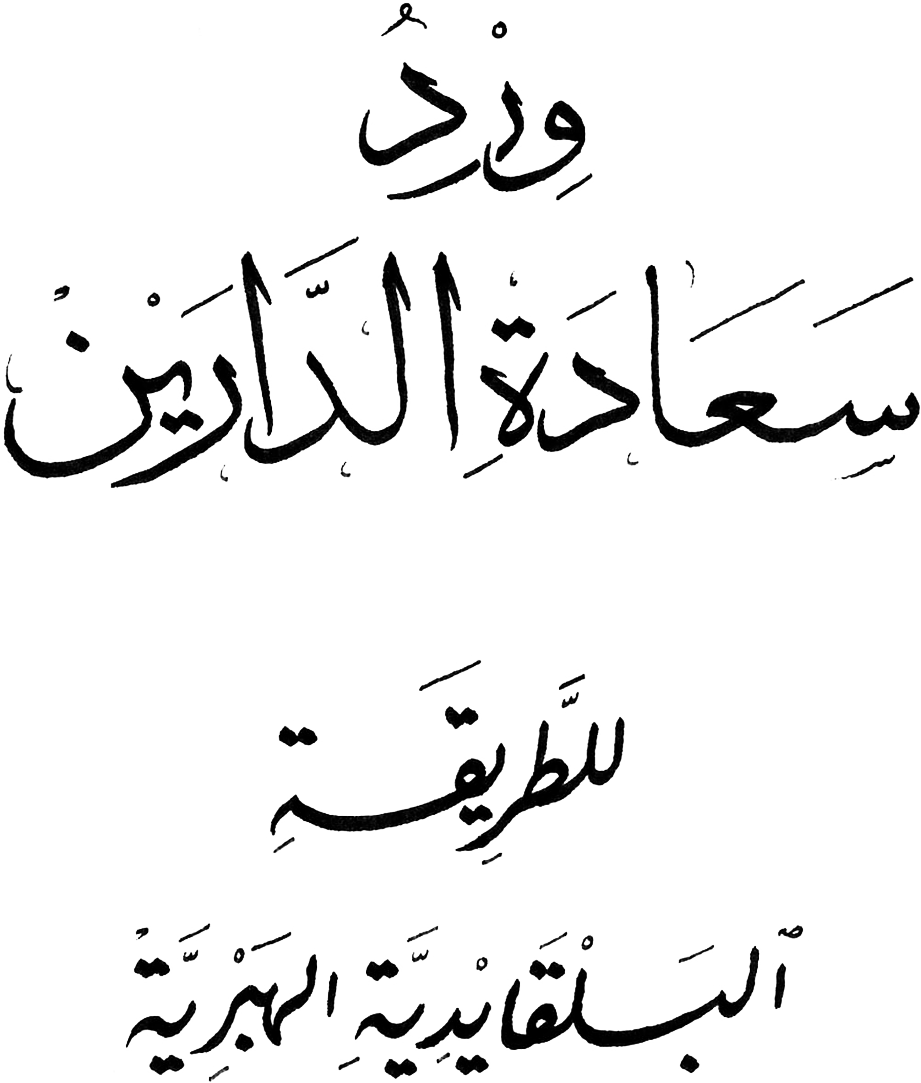 وِرْدُ
سَعَادَةِ الدَّارَيْنْ
للطَّرِيقَةِ
ٱلبَلْقَايْدِيَّةِ الهَبْرِيَّةْ